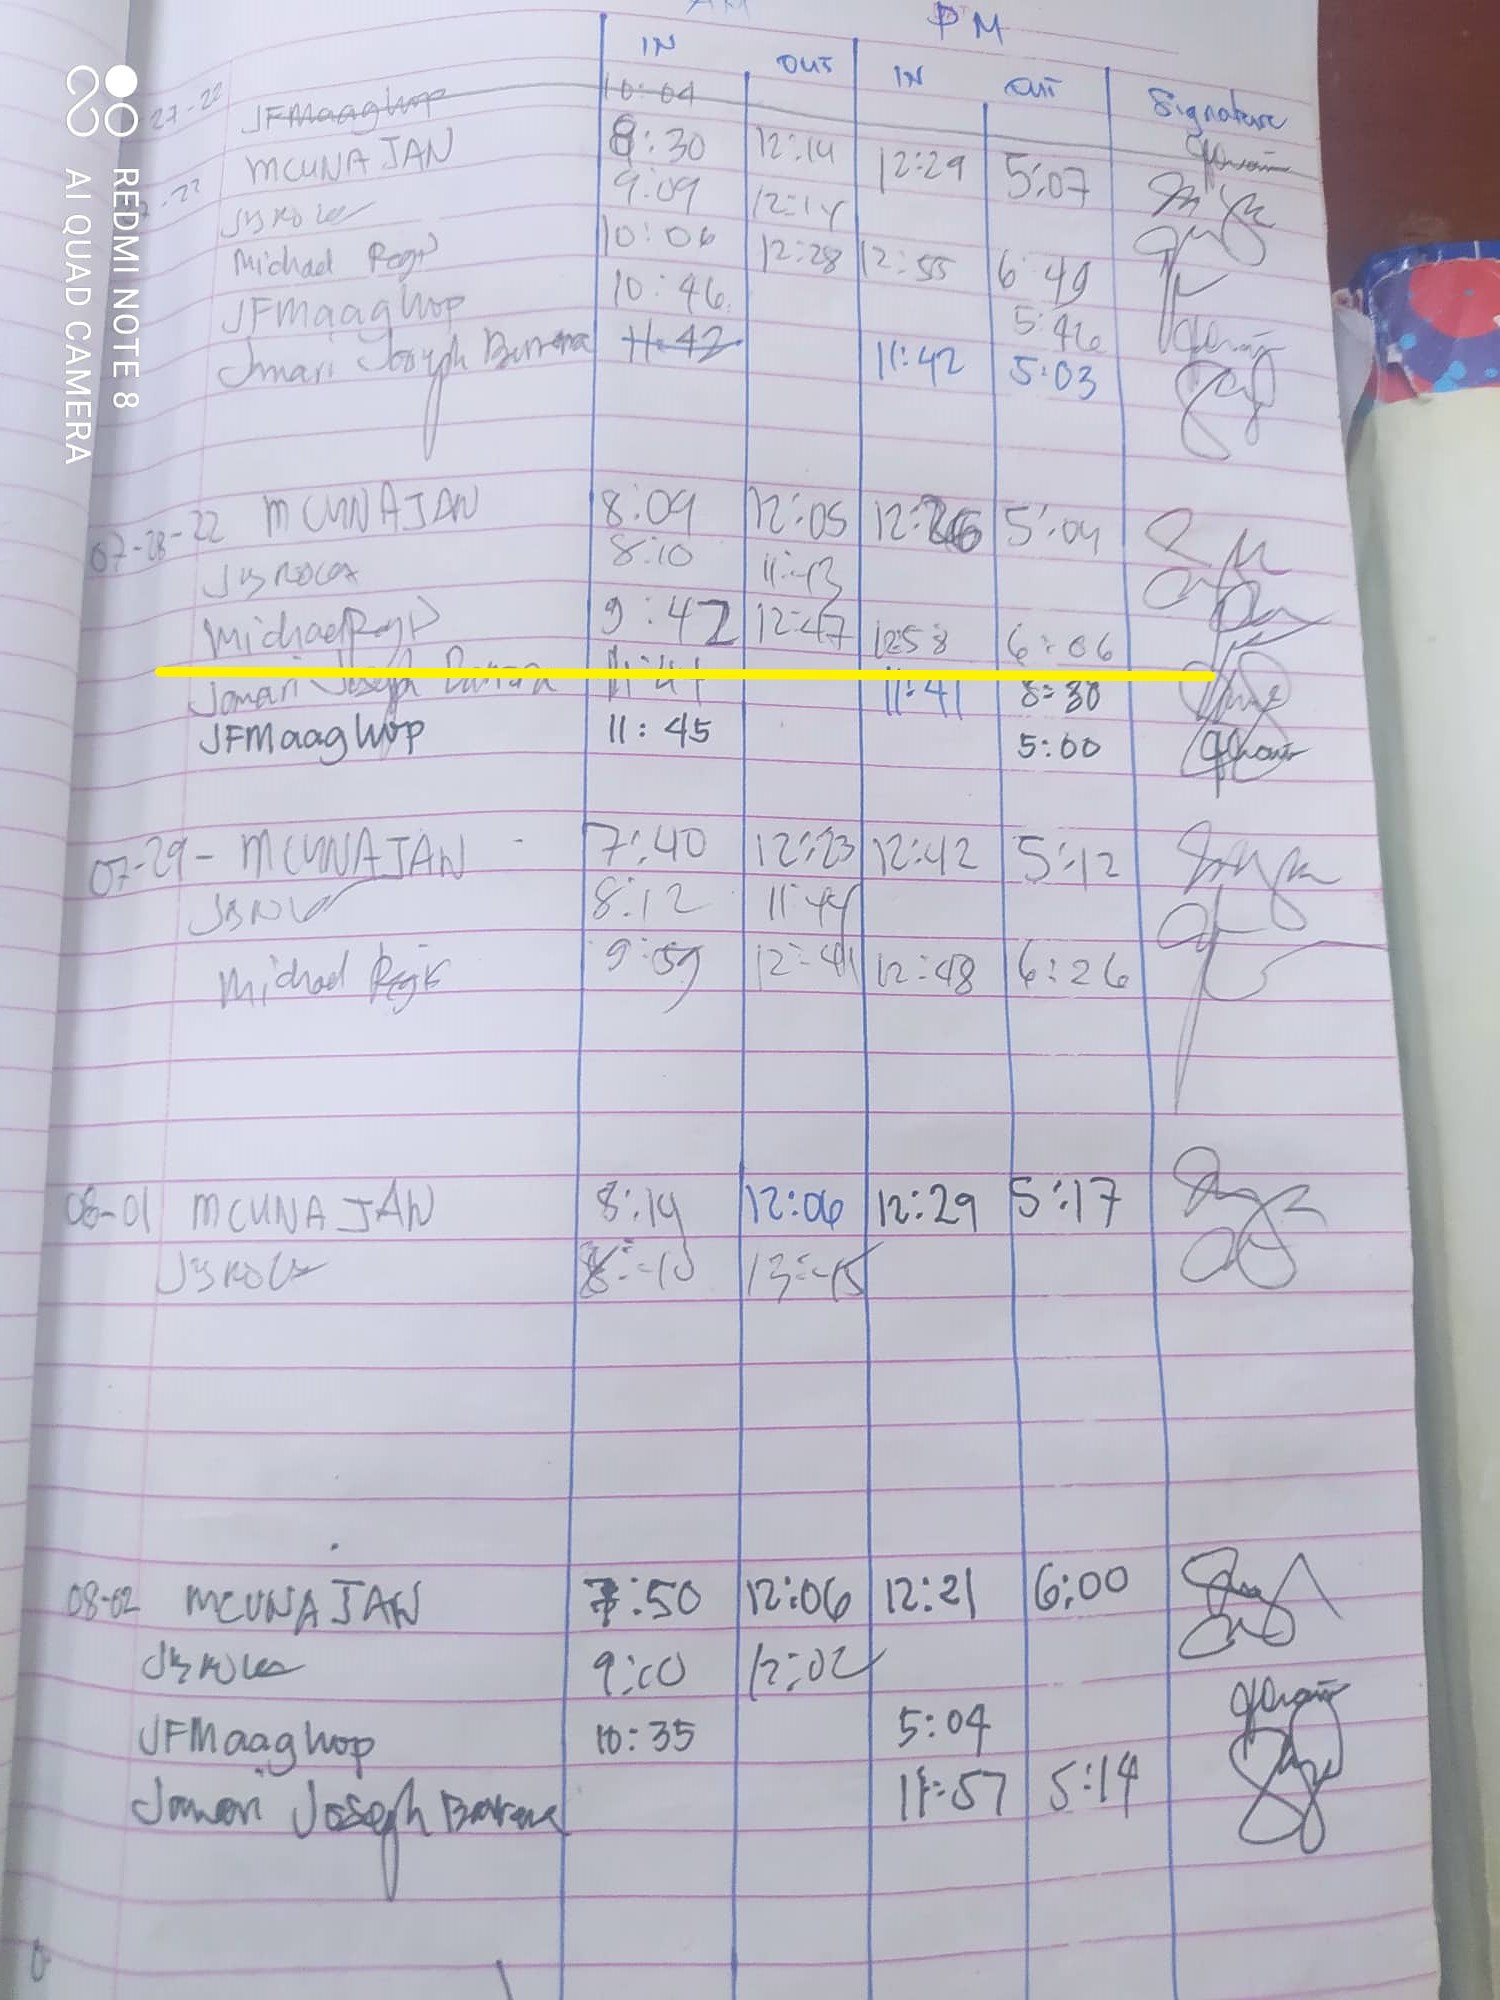 PM
IN OUT IN OUT Signature
27-22 JFMaaghop 10:04
MCUNAJAN 8:30 12:14 12:29 5:07
9:09 12:14
Michael Regis 10:06 12:28 12:55 6:49
JFMaaghop 10:46 5:46
Jomari Joseph 11:42 11:42 5:03
07-28-22 MCUNAJAN 8:09 12:05 12:26 5:04
8:10 11:43
Michael Regis 9:42 12:47 12:58 6:06
Jomari Joseph 11:41 11:41 8:30
JFMaaghop 11:45 5:00
07-29- MCUNAJAN 7:40 12:23 12:42 5:12
8:12 11:44
Michael Regis 9:59 12:41 12:48 6:26
08-01 MCUNAJAN 8:14 12:06 12:29 5:17
08-02 MCUNAJAN 7:50 12:06 12:21 6:00
9:10 12:02
JFMaaghop 10:35 5:04
Jomari Joseph 11:57 5:14
REDMI NOTE 8
AI QUAD CAMERA